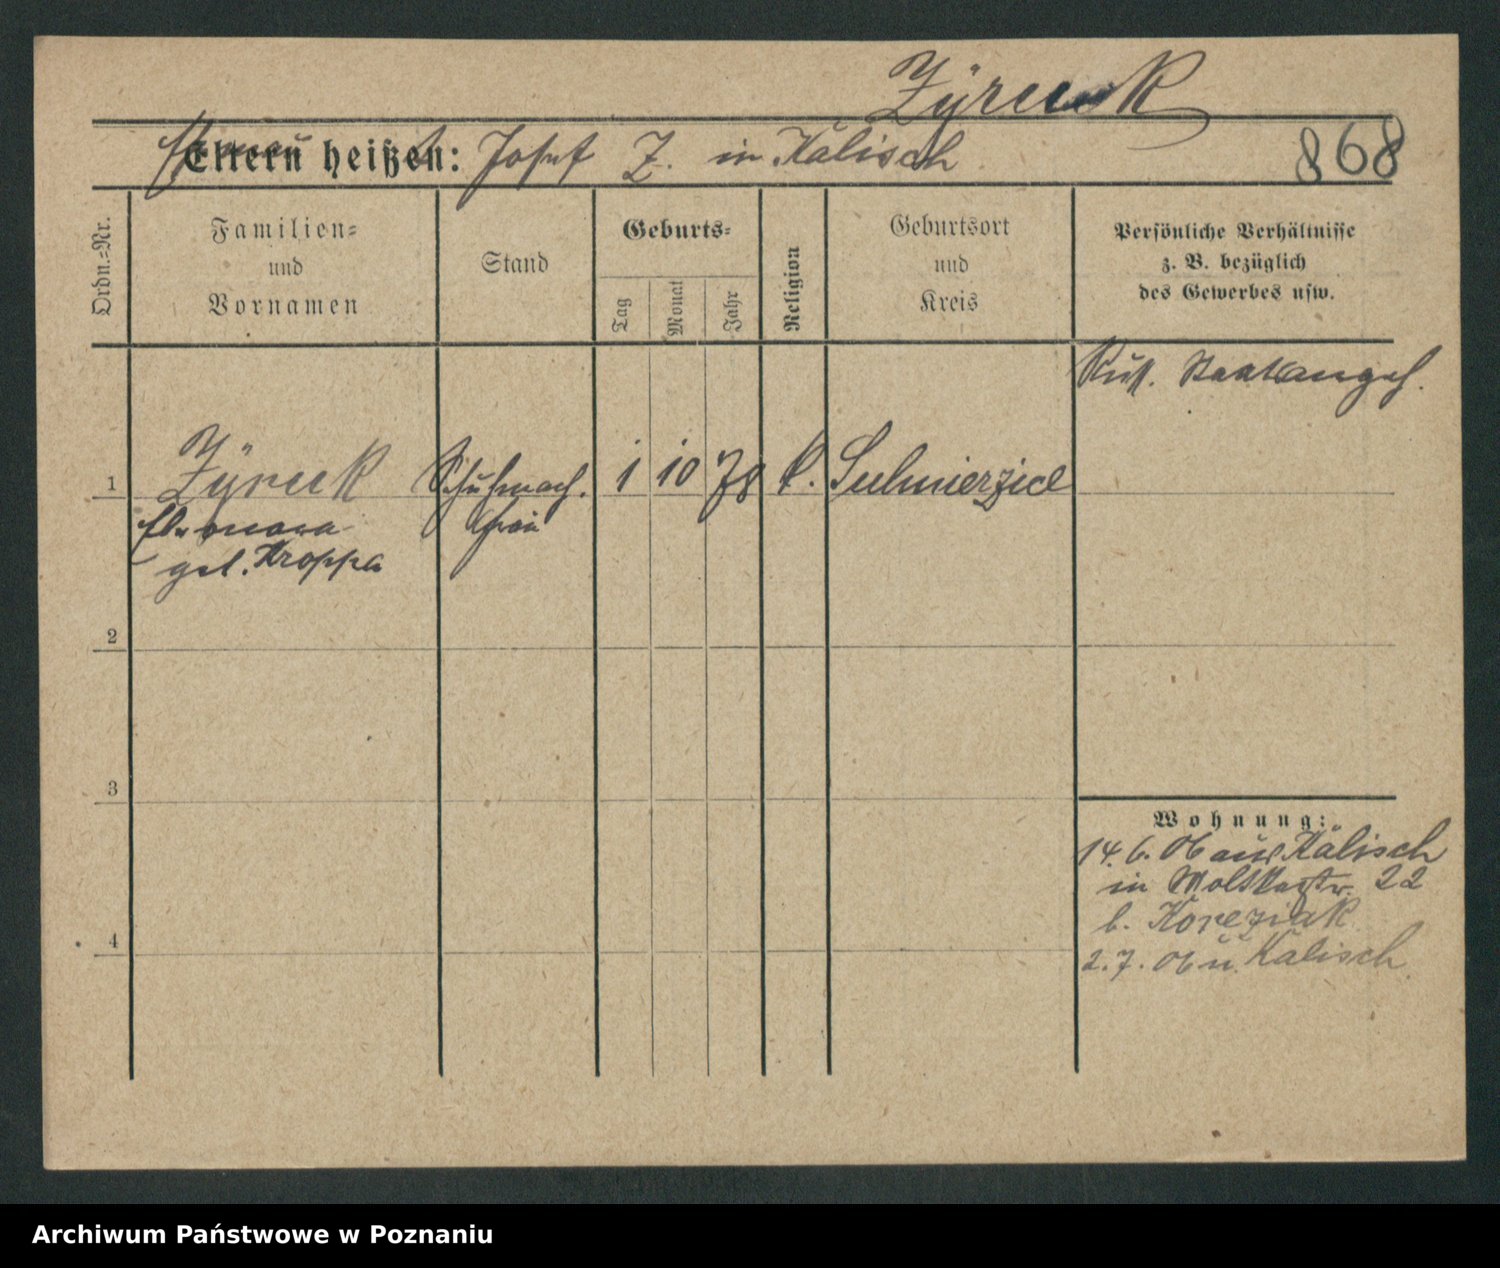 Zÿreck
Eltern heißen: Josef Z. in Kalisch
868
Ordn.-Nr.
Familien-
und
Vornamen
Stand
Geburts-
Tag
Monat
Jahr
Religion
Geburtsort
und
Kreis
Persönliche Verhältnisse
z. B. bezüglich
des Gewerbes usw.
Russ. Staatsangeh.
1
Zÿreck
Eleonora
geb. Kroppa
Schuhmach.
frau
1 10 78 k. Sulmierzice
2
3
4
Wohnung:
14. 6. 06 aus Kalisch
in Moltkestr. 22
b. Koreziak
2. 7. 06 n. Kalisch.
Archiwum Państwowe w Poznaniu